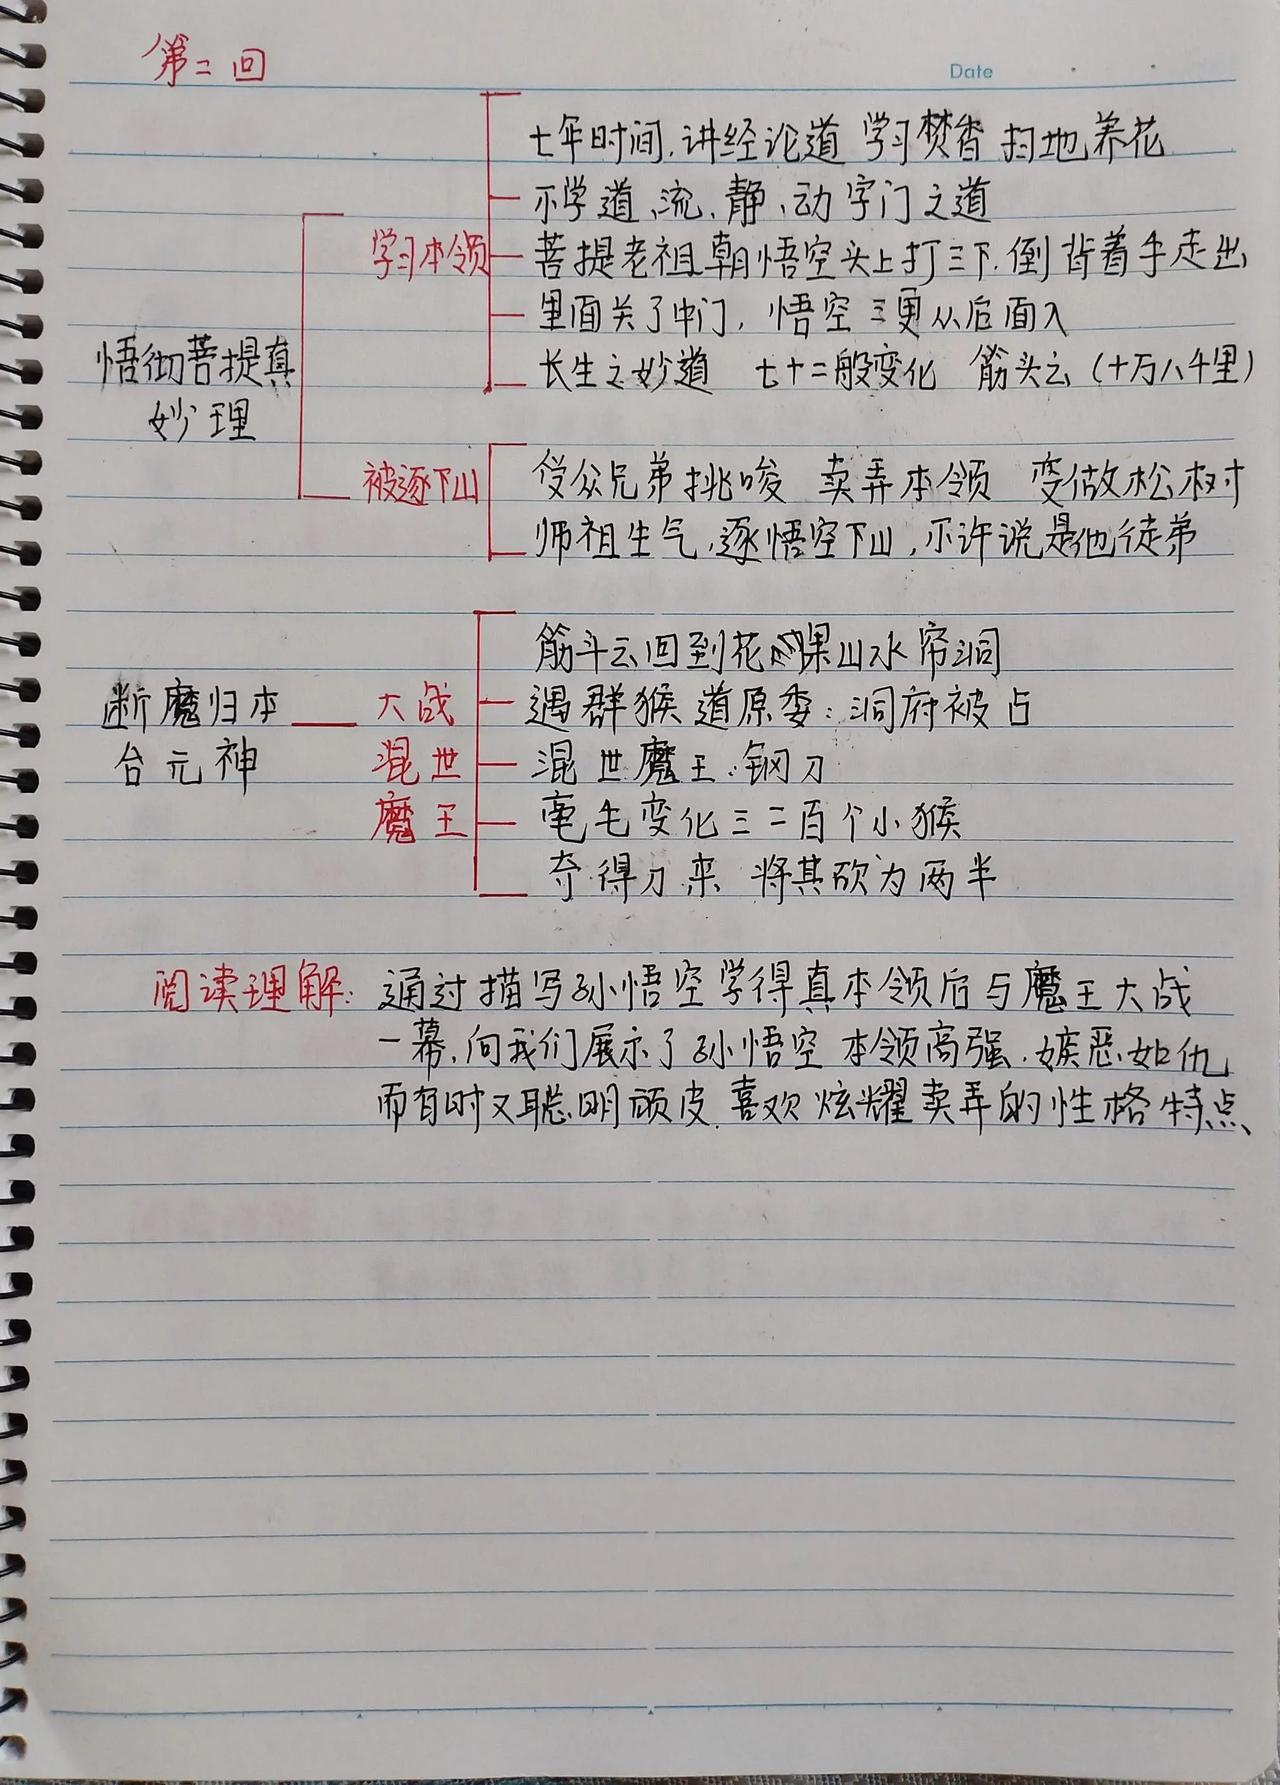 第二回
Date
七年时间、讲经论道 学习焚香 扫地 养花
不学道、流、静、动字门之道
学习本领
菩提老祖朝悟空头上打三下、倒背着手走出
里面关了中门，悟空三更从后面入
悟彻菩提真
妙理
长生之妙道 七十二般变化 筋头云（十万八千里）
被逐下山
受众兄弟挑唆 卖弄本领 变做松树
师祖生气，逐悟空下山，不许说是他徒弟
筋斗云回到花果山水帘洞
断魔归本
合元神
大战
混世
魔王
遇群猴道原委：洞府被占
混世魔王：钢刀
毫毛变化三二百个小猴
夺得刀来 将其砍为两半
阅读理解：通过描写孙悟空学得真本领后与魔王大战
一幕，向我们展示了孙悟空本领高强、嫉恶如仇
而有时又聪明顽皮、喜欢炫耀卖弄的性格特点、